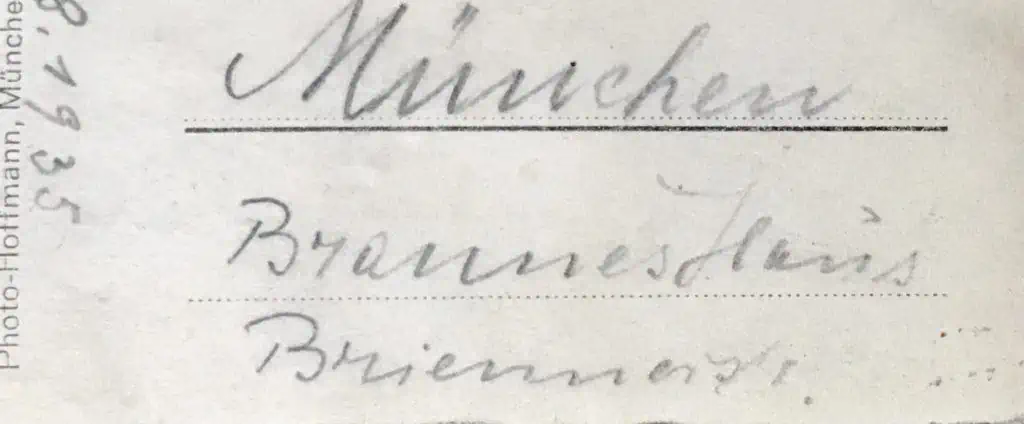 Photo-Hoffmann, Münche
8.1935
München
Braunes Haus
Briennerstr.